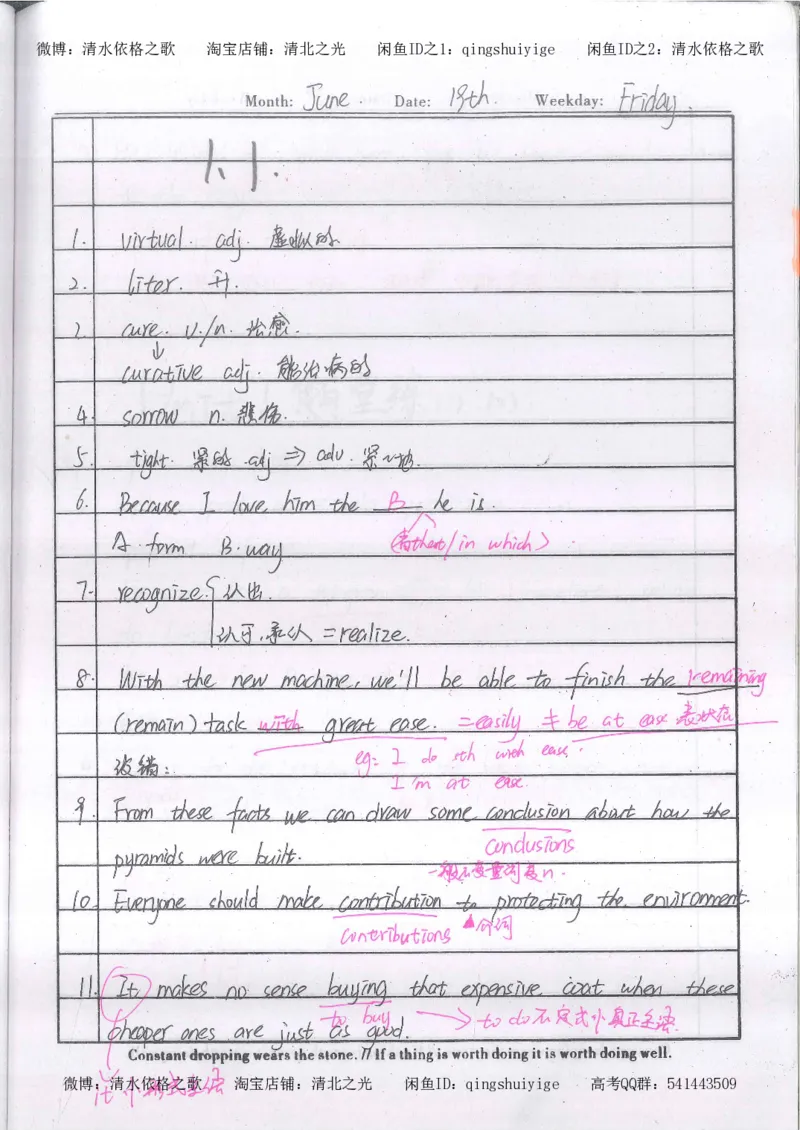 微博：清水依格之歌 淘宝店铺：清北之光 闲鱼ID之1：qingshuiyige 闲鱼ID之2：清水依格之歌
Month: June. Date: 19th. Weekday: Friday.
1.1.
1. virtual. adj. 虚拟的
2. liter. 升.
3. cure. v./n. 治愈.
↓
curative adj. 能治病的
4. sorrow n. 悲伤.
5. tight. 紧的 adj ⇒ adv. 紧~地.
6. Because I love him the B he is.
A form B. way (that/in which)
7. recognize. { 认出.
认可, 承认 = realize.
8. With the new machine, we'll be able to finish the remaining
(remain) task with great ease. = easily ≠ be at ease 表状态
eg: I do sth with ease.
改错: I'm at ease.
9. From these facts we can draw some conclusion about how the
conclusions
pyramids were built.
一般不变量词复n.
10. Everyone should make contribution to protecting the environment.
contributions ▲介词
11. It makes no sense buying that expensive coat when these
to buy → to do不定式作真正主语
cheaper ones are just as good.
Constant dropping wears the stone. // If a thing is worth doing it is worth doing well.
作形式主语
微博：清水依格之歌 淘宝店铺：清北之光 闲鱼ID：qingshuiyige 高考QQ群：541443509